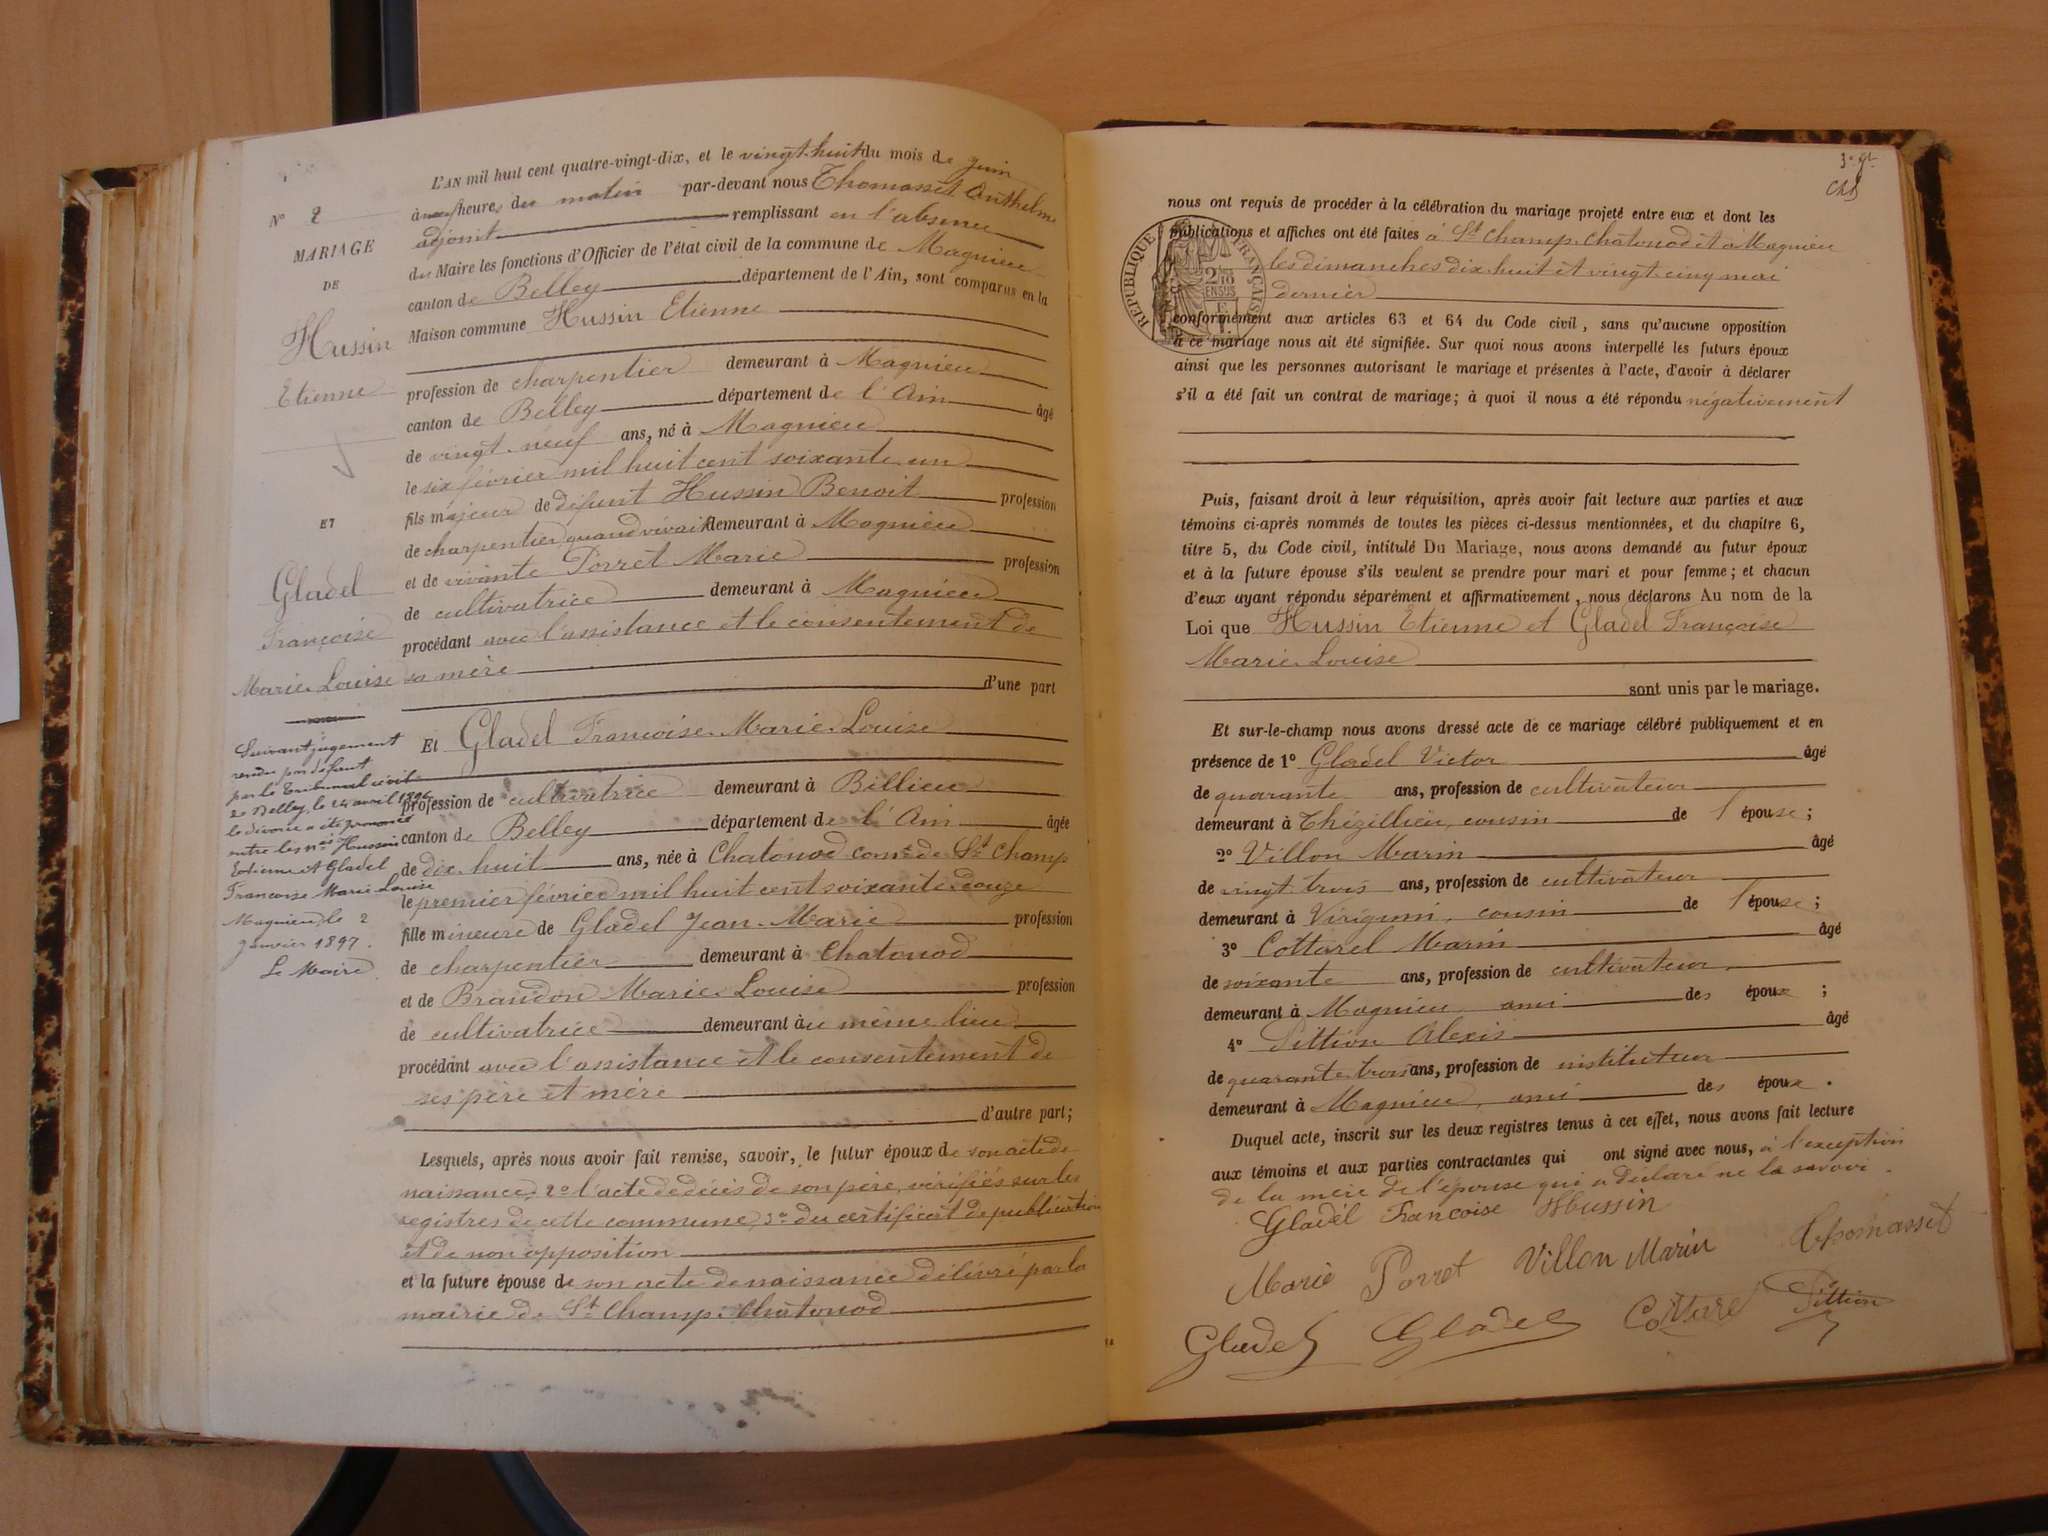 L'AN mil huit cent quatre-vingt-dix, et le vingt-huit du mois de juin
à neuf heures du matin par-devant nous Thomasset Anthelme
adjoint remplissant en l'absence
du Maire les fonctions d'Officier de l'état civil de la commune de Magnieu
canton de Belley département de l'Ain, sont comparus en la
Maison commune Hussin Etienne
profession de charpentier demeurant à Magnieu
canton de Belley département de l'Ain âgé
de vingt-neuf ans, né à Magnieu
le six février mil huit cent soixante un
fils majeur de défunt Hussin Benoit profession
de charpentier quand vivait demeurant à Magnieu
et de vivante Porret Marie profession
de cultivatrice demeurant à Magnieu
procédant avec l'assistance et le consentement de
sa mère
d'une part
Et Gladel Françoise Marie Louise
profession de cultivatrice demeurant à Billieu
canton de Belley département de l'Ain âgée
de dix huit ans, née à Chatonod com.e de St Champ
le premier février mil huit cent soixante douze
fille mineure de Gladel Jean-Marie profession
de charpentier demeurant à Chatonod
et de Brandon Marie Louise profession
de cultivatrice demeurant àu même lieu
procédant avec l'assistance et le consentement de
ses père et mère
d'autre part;
Lesquels, après nous avoir fait remise, savoir, le futur époux de son acte de
naissance, 2º l'acte de décès de son père, vérifiés sur les
registres de cette commune, 3º du certificat de publication
et de non opposition
et la future épouse de son acte de naissance délivré par la
mairie de St Champ-Chatonod
Nº 2
MARIAGE
DE
Hussin
Etienne
ET
Gladel
Françoise
Marie Louise
Suivant jugement
rendu par défaut
par le Tribunal civil
de Belley, le 24 avril 1896
le divorce a été prononcé
entre les més Hussin
Etienne et Gladel
Françoise Marie Louise
Magnieu, le 2
janvier 1897.
Le Maire
nous ont requis de procéder à la célébration du mariage projeté entre eux et dont les
publications et affiches ont été faites à St Champ-Chatonod et à Magnieu
les dimanches dix-huit et vingt-cinq mai
dernier
RÉPUBLIQUE FRANÇAISE
conformément aux articles 63 et 64 du Code civil, sans qu'aucune opposition
à ce mariage nous ait été signifiée. Sur quoi nous avons interpellé les futurs époux
ainsi que les personnes autorisant le mariage et présentes à l'acte, d'avoir à déclarer
s'il a été fait un contrat de mariage; à quoi il nous a été répondu négativement
Puis, faisant droit à leur réquisition, après avoir fait lecture aux parties et aux
témoins ci-après nommés de toutes les pièces ci-dessus mentionnées, et du chapitre 6,
titre 5, du Code civil, intitulé Du Mariage, nous avons demandé au futur époux
et à la future épouse s'ils veulent se prendre pour mari et pour femme; et chacun
d'eux ayant répondu séparément et affirmativement, nous déclarons Au nom de la
Loi que Hussin Etienne et Gladel Françoise
Marie Louise
sont unis par le mariage.
Et sur-le-champ nous avons dressé acte de ce mariage célébré publiquement et en
présence de 1º Gladel Victor âgé
de quarante ans, profession de cultivateur
demeurant à Thézillieu, cousin de l'épouse;
2º Villon Marin âgé
de vingt trois ans, profession de cultivateur
demeurant à Virignin, cousin de l'épouse;
3º Cottarel Marin âgé
de soixante ans, profession de cultivateur
demeurant à Magnieu ami des époux;
4º Pittion Alexis âgé
de quarante-trois ans, profession de instituteur
demeurant à Magnieu, ami des époux.
Duquel acte, inscrit sur les deux registres tenus à cet effet, nous avons fait lecture
aux témoins et aux parties contractantes qui ont signé avec nous, à l'exception
de la mère de l'épouse qui a déclaré ne la savoir.
Gladel Francoise Hussin
Marie Porret Villon Marin Thomasset
Gladel Gladel Cottarel Pittion